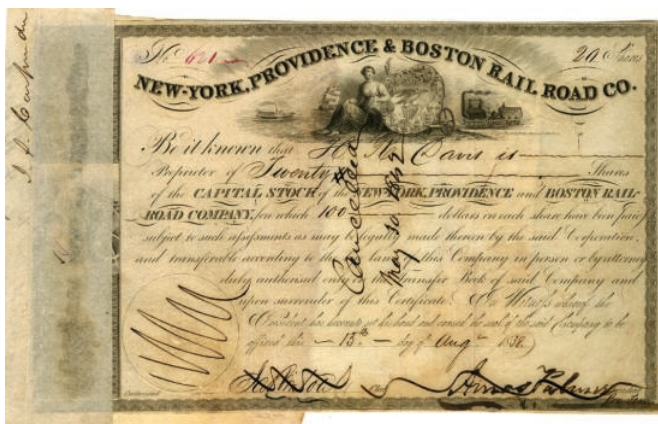 No. 621 20 Shares
NEW-YORK, PROVIDENCE & BOSTON RAIL ROAD CO.
Be it known that Davis is
Proprietor of Twenty Shares
of the CAPITAL STOCK of the NEW-YORK, PROVIDENCE and BOSTON RAIL-
ROAD COMPANY, on which 100 dollars on each share have been paid,
subject to such assessments as may be legally made thereon by the said Corporation,
and transferable according to the laws of this Company in person or by attorney
duly authorised only in the Transfer Book of said Company and
upon surrender of this Certificate. In Witness whereof the
President has hereunto set his hand and caused the seal of the said Company to be
affixed this 13th day of Augt 1838.
Cancelled
May 30 1842